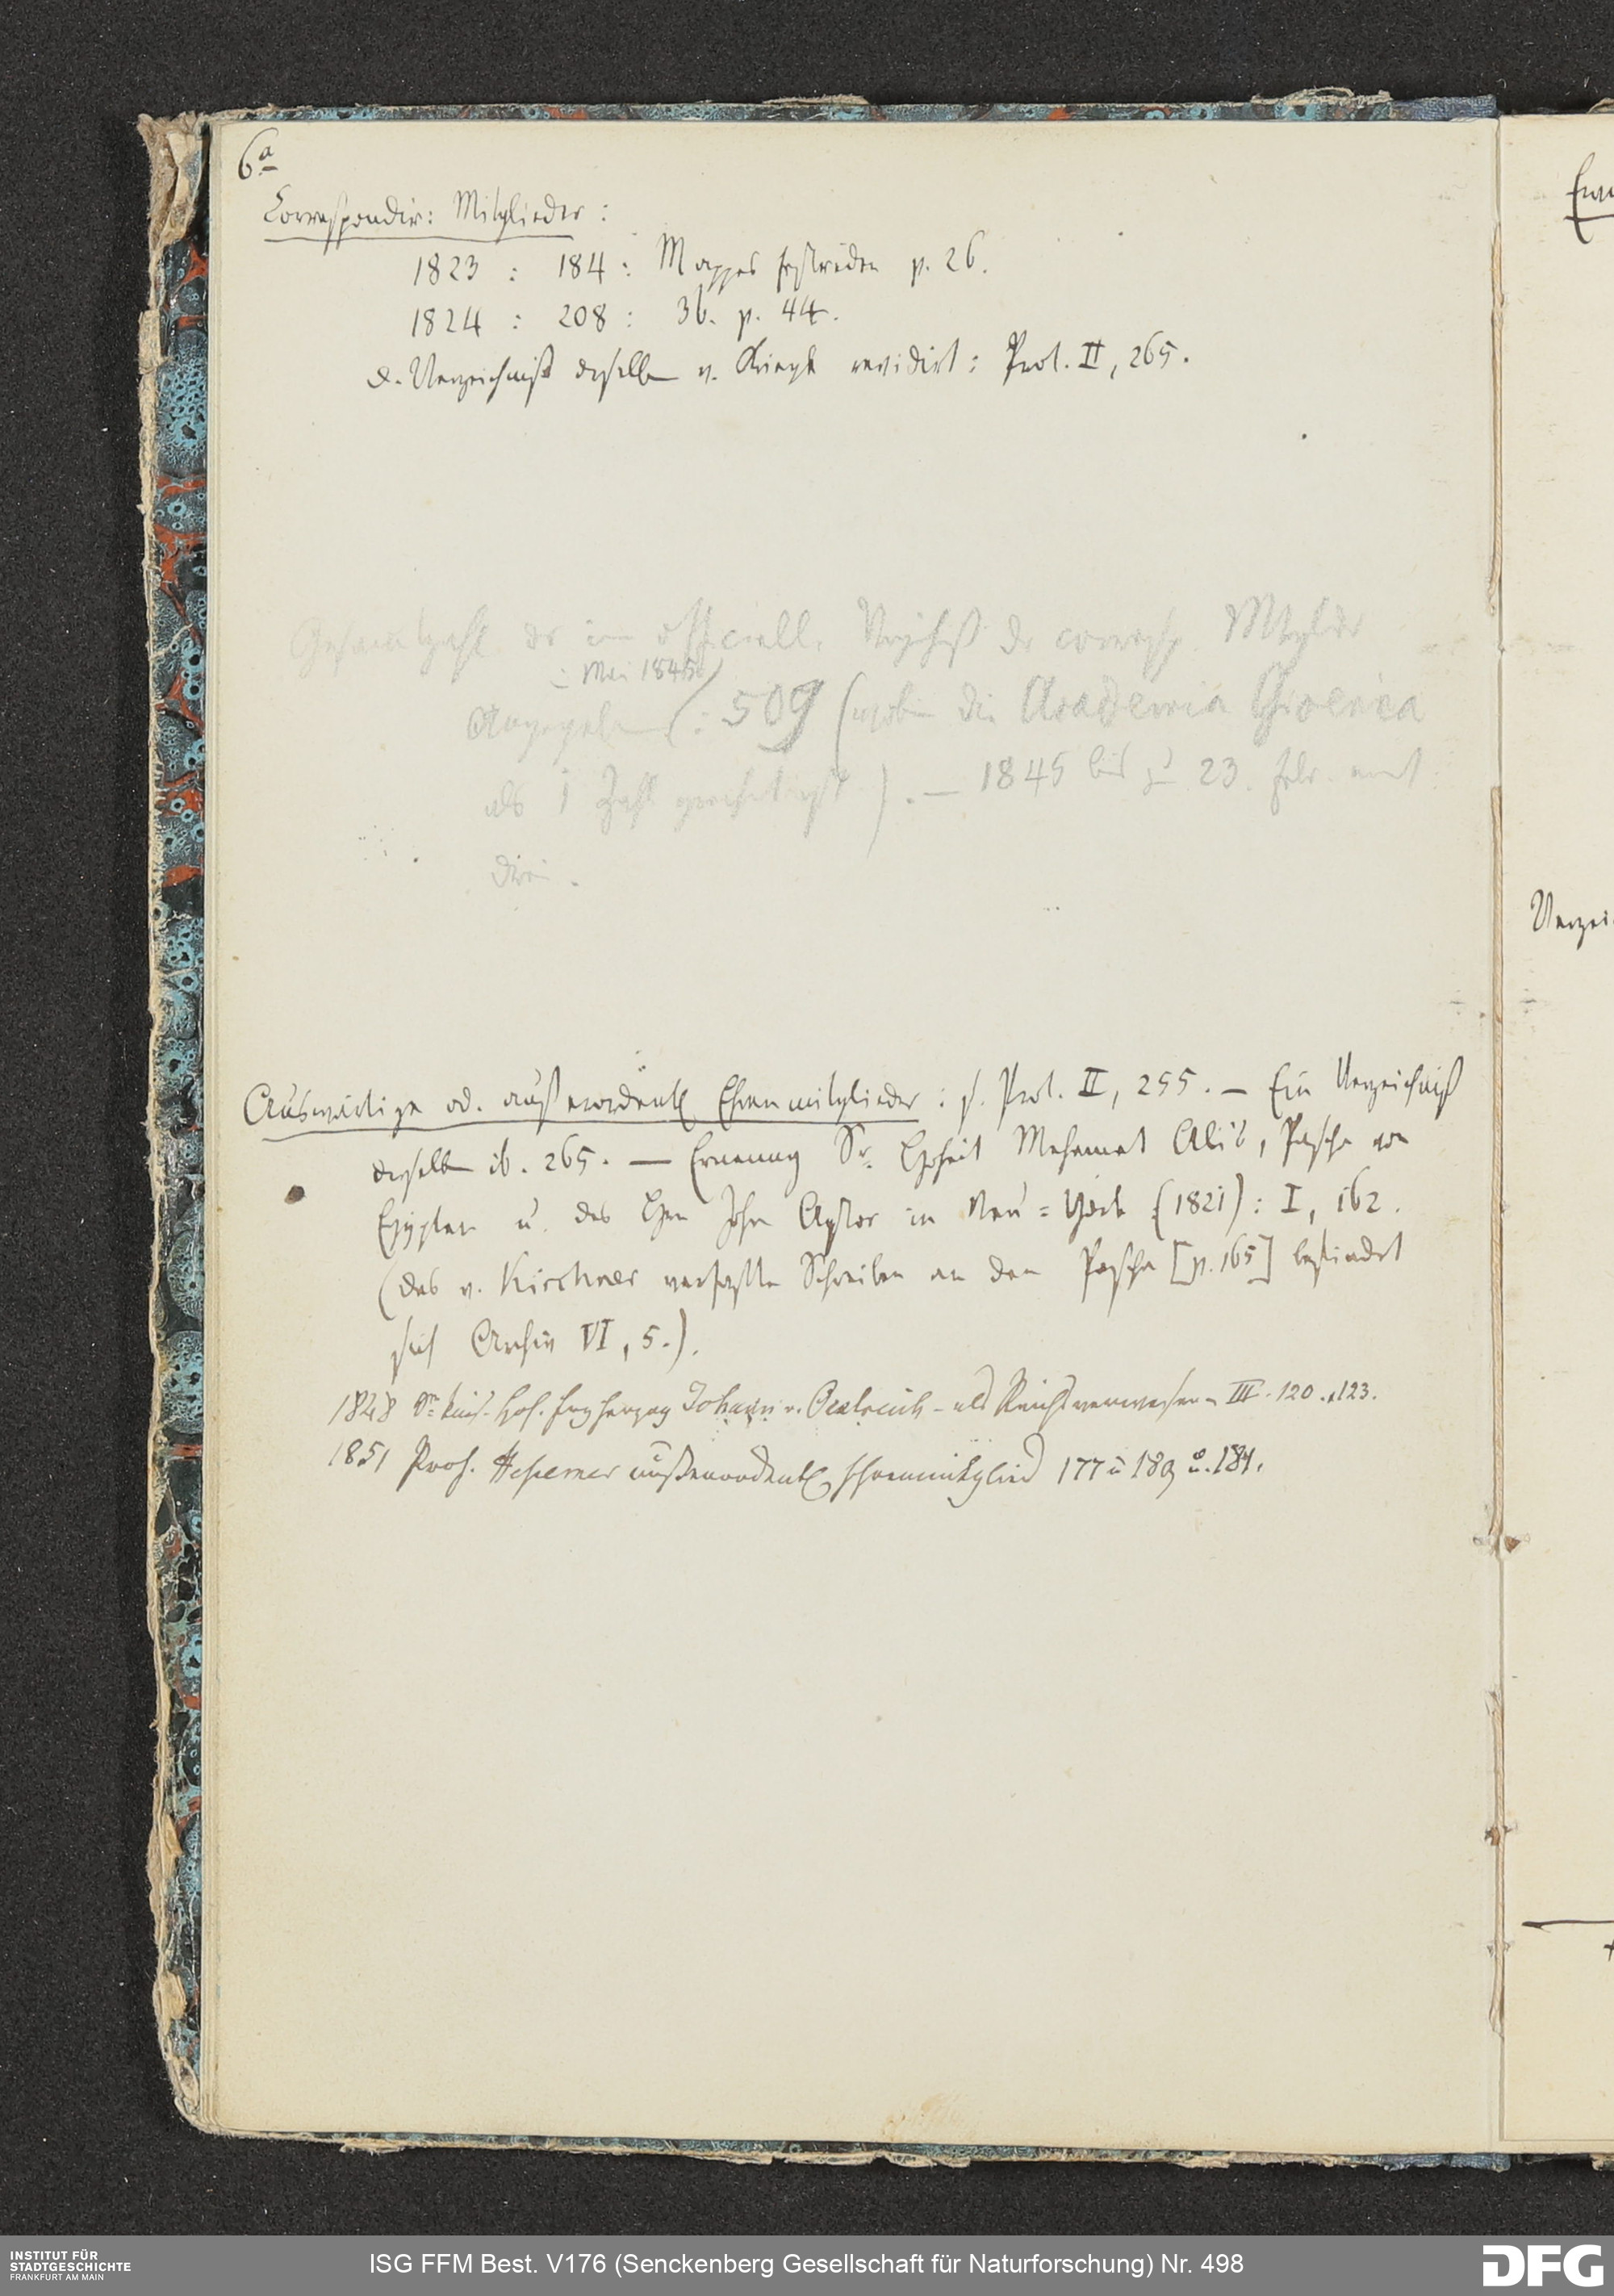 6a
Correspondir: Mitglieder:
1823 : 184 : Mappes Festreden p. 26.
1824 : 208 : Ib. p. 44.
d. Verzeichniß derselben v. Kriegk revidirt: Prot. II, 265.
Gesamtzahl der im officiell. Verzchniß der corresp. Mitglieder
Mai 1845
Angegeben: 509 (wobei die Academia Gioenia
als 1 Zahl ). — 1845 bis zu 23. Febr. ernt
drei.
Auswärtige od. außerordentl Ehrenmitglieder : s. Prot. II, 255. — Ein Verzeichniß
derselben ib. 265. — Ernennung Sr. Hoheit Mehemet Ali's, Pascha von
Egypten u. des Hrn John Astor in Neu=York (1821) : I, 162.
(das v. Kirchner verfaßte Schreiben an den Pascha [p. 165] befindet
sich Archiv VI, 5.).
1848 Sr kais. Hoh. Erzherzog Johann v. Oestreich - als Reichsverweser - III. 120. 123.
1851 Prof. Hessemer außerordentl Ehrenmitglied 177 u 189 u. 184.
Verzei
INSTITUT FÜR
STADTGESCHICHTE
FRANKFURT AM MAIN
ISG FFM Best. V176 (Senckenberg Gesellschaft für Naturforschung) Nr. 498
DFG